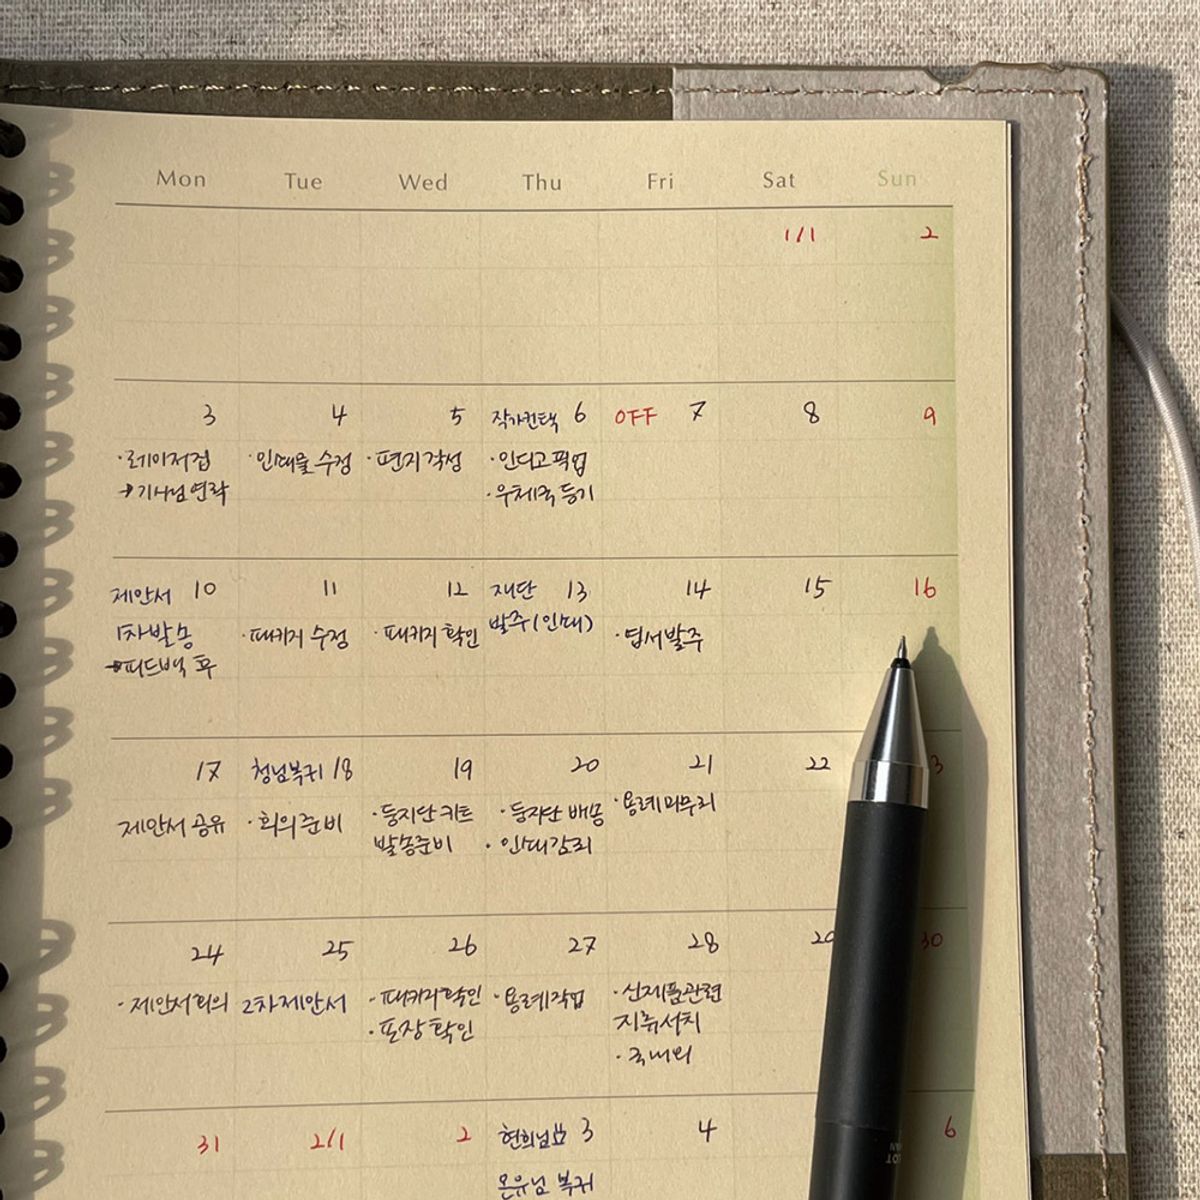 Mon Tue Wed Thu Fri Sat Sun
1/1 2
3 4 5 작가컨택 6 OFF 7 8 9
·레이저컵 ·인대물 수정 ·편지각성 ·인디고픽업
→기사님 연락 ·우체국 등기
제안서 10 11 12 재단 13 14 15 16
1차발송 ·패키지 수정 ·패키지 확인 발주(인대) ·엽서발주
→피드백 후
17 청님복귀 18 19 20 21 22 3
제안서 공유 ·회의준비 ·둥지단 키트 ·둥지단 배송 ·용례마무리
발송준비 ·인대감리
24 25 26 27 28 29 30
·제안서회의 2차제안서 ·패키지확인 ·용례작업 ·신제품관련
·포장확인 지류서치
·국내외
31 2/1 2 현희님 3 4 6
온유님 복귀